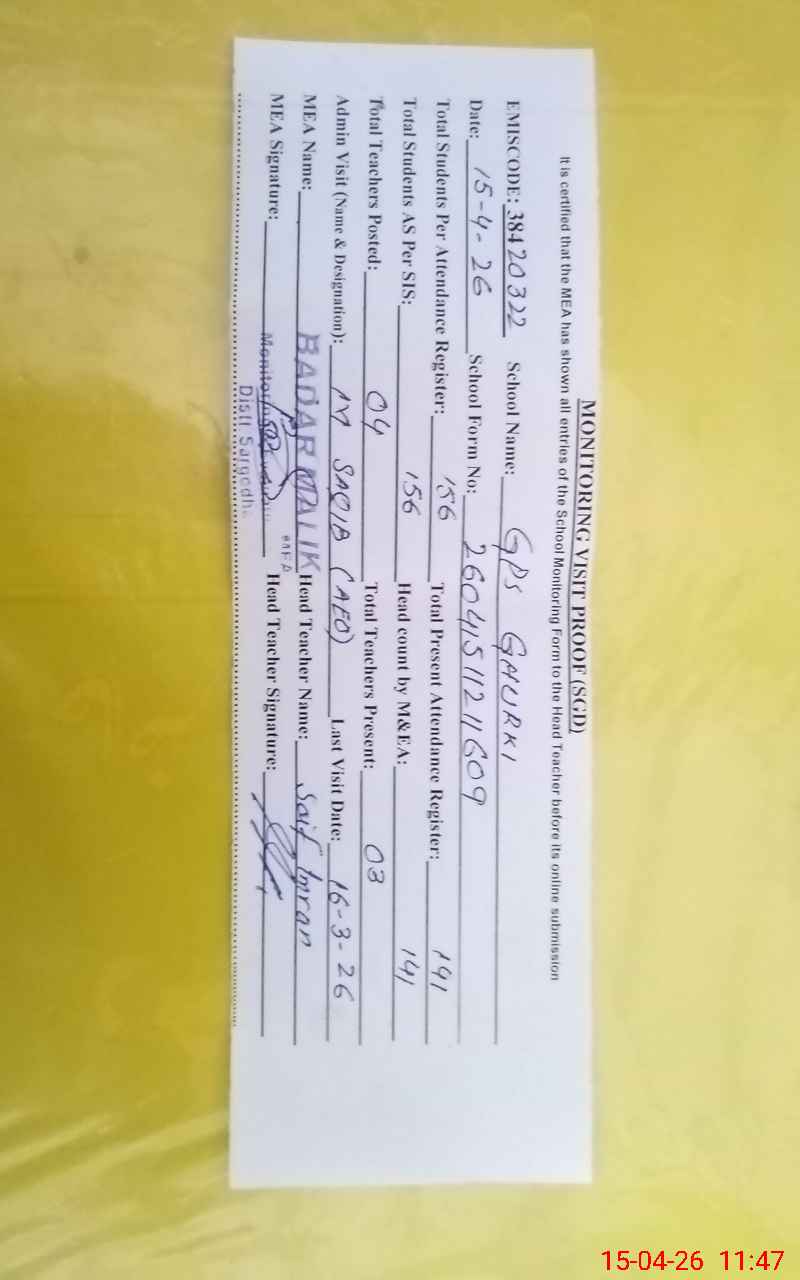 MONITORING VISIT PROOF (SGD)
It is certified that the MEA has shown all entries of the School Monitoring Form to the Head Teacher before its online submission
EMISCODE: 38420322 School Name: GPS GAURKI
Date: 15-4-26 School Form No: 26041511211609
Total Students Per Attendance Register: 156 Total Present Attendance Register: 141
Total Students AS Per SIS: 156 Head count by M&EA: 141
Total Teachers Posted: 04 Total Teachers Present: 03
Admin Visit (Name & Designation): M SAQIB (AEO) Last Visit Date: 16-3-26
MEA Name: BADAR MALIK Head Teacher Name: Saif Imran
MEA Signature: Head Teacher Signature:
Distt Sargodha
15-04-26 11:47